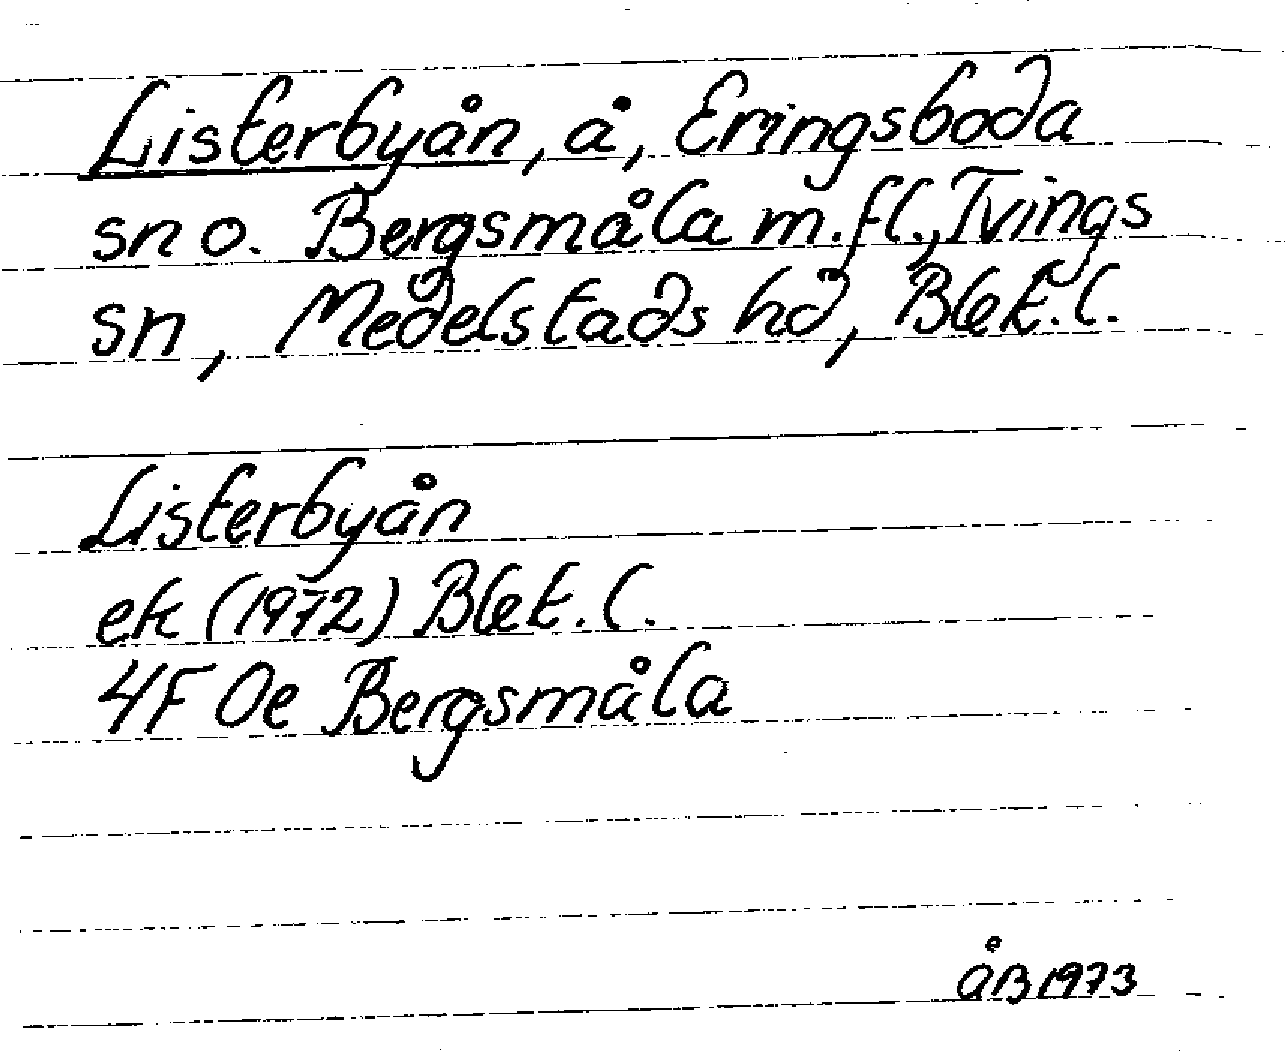 Listerbyån, å, Eringsboda
sn o. Bergsmåla m.fl., Tvings
sn, Medelstads hd, Blek.l.
Listerbyån
ek (1972) Blek.l.
4F 0e Bergsmåla
åB 1973